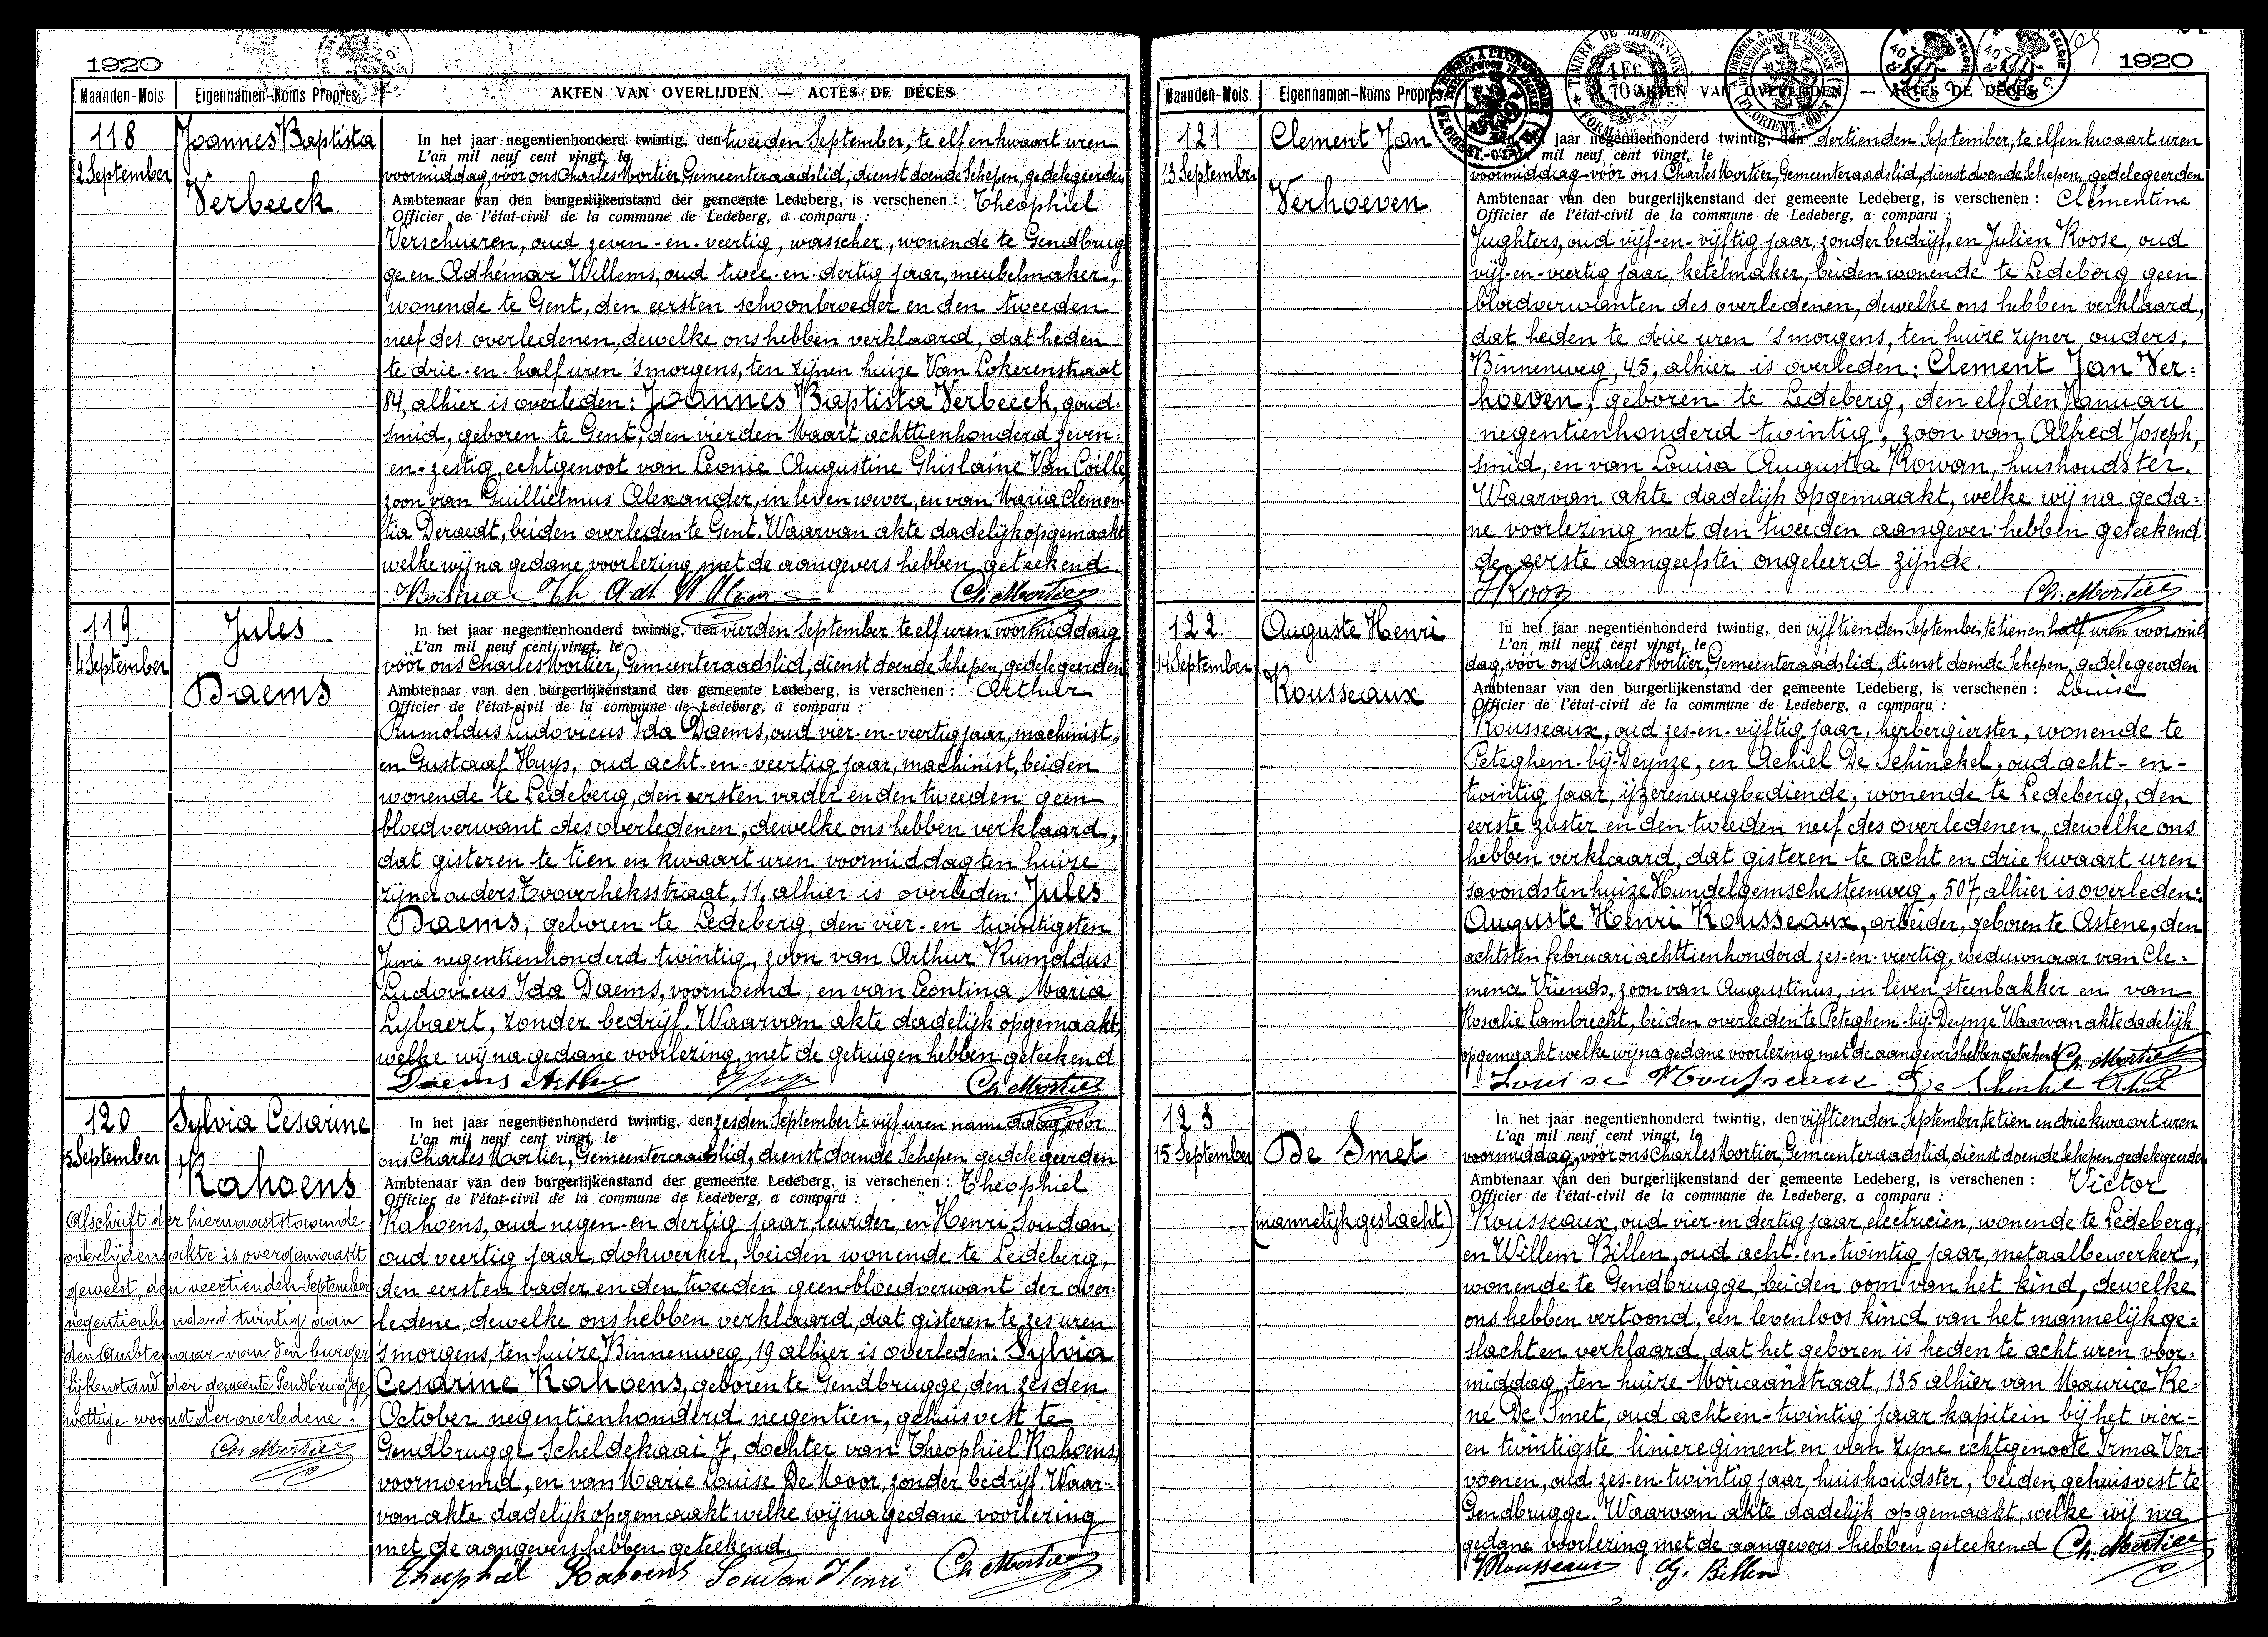 1920
Maanden-Mois
Eigennamen-Noms Propres
AKTEN VAN OVERLIJDEN. — ACTES DE DÉCÈS
118
2 September
Joannes Baptista
Verbeeck
In het jaar negentienhonderd twintig, den tweeden September, te elf en kwaart uren
L'an mil neuf cent vingt, le
voormiddag, vóór ons Charles Mortier, Gemeenteraadslid, dienstdoende Schepen, gedelegeerden
Ambtenaar van den burgerlijkenstand der gemeente Ledeberg, is verschenen : Theophiel
Officier de l'état-civil de la commune de Ledeberg, a comparu :
Verschueren, oud zeven-en-veertig, wasscher, wonende te Gendbrug
ge en Adhémar Willems, oud twee-en-dertig jaar, meubelmaker,
wonende te Gent, den eersten schoonbroeder en den tweeden
neef des overledenen, dewelke ons hebben verklaard, dat heden
te drie-en-half uren 's morgens, ten zijnen huize Van Lokerenstraat
84, alhier is overleden: Joannes Baptista Verbeeck, goud:
smid, geboren te Gent, den vierden Maart achttienhonderd zeven:
en-zestig, echtgenoot van Leonie Augustine Ghislaine Van Coille,
zoon van Guillielmus Alexander, in leven wever, en van Maria Clemen
tia Deraedt, beiden overleden te Gent. Waarvan akte dadelijk opgemaakt
welke wij na gedane voorlezing met de aangevers hebben geteekend.
Th Adh Willems Ch. Mortier
119
4 September
Jules
Daems
In het jaar negentienhonderd twintig, den vierden September te elf uren voormiddag
L'an mil neuf cent vingt, le
vóór ons Charles Mortier, Gemeenteraadslid, dienstdoende Schepen, gedelegeerden
Ambtenaar van den burgerlijkenstand der gemeente Ledeberg, is verschenen : Arthur
Officier de l'état-civil de la commune de Ledeberg, a comparu :
Rumoldus Ludovicus Ida Daems, oud vier-en-veertig jaar, machinist,
en Gustaaf Huys, oud acht-en-veertig jaar, machinist, beiden
wonende te Ledeberg, den eersten vader en den tweeden geen
bloedverwant des overledenen, dewelke ons hebben verklaard,
dat gisteren te tien en kwaart uren voormiddag ten huize
zijner ouders Tooverheksstraat, 11, alhier is overleden: Jules
Daems, geboren te Ledeberg, den vier-en twintigsten
Juni negentienhonderd twintig, zoon van Arthur Rumoldus
Ludovicus Ida Daems, voornoemd, en van Leontina Maria
Lybaert, zonder bedrijf. Waarvan akte dadelijk opgemaakt,
welke wij na gedane voorlezing, met de getuigen hebben geteekend
Daems Arthur Huys Ch. Mortier
120
5 September
Sylvia Cesarine
Kahoens
Afschrift der hiernaaststaande
overlijdensakte is overgemaakt
geweest den veertienden September
negentienhonderd twintig aan
den Ambtenaar van den burger
lijkenstand der gemeente Gendbrugge
wettige woonst der overledene.
Ch. Mortier
In het jaar negentienhonderd twintig, den zesden September te vijf uren namiddag, vóór
L'an mil neuf cent vingt, le
ons Charles Mortier, Gemeenteraadslid, dienstdoende Schepen gedelegeerden
Ambtenaar van den burgerlijkenstand der gemeente Ledeberg, is verschenen : Theophiel
Officier de l'état-civil de la commune de Ledeberg, a comparu :
Kahoens, oud negen-en dertig jaar, leurder, en Henri Soudan,
oud veertig jaar, dokwerker, beiden wonende te Ledeberg,
den eersten vader en den tweeden geen bloedverwant der over:
ledene, dewelke ons hebben verklaard, dat gisteren te zes uren
's morgens, ten huize Binnenweg, 19 alhier is overleden: Sylvia
Cesarine Kahoens, geboren te Gendbrugge, den zesden
October negentienhonderd negentien, gehuisvest te
Gendbrugge Scheldekaai 7, dochter van Theophiel Kahoens,
voornoemd, en van Marie Louise De Moor, zonder bedrijf. Waar:
van akte dadelijk opgemaakt welke wij na gedane voorlezing
met de aangevers hebben geteekend.
Theophiel Kahoens Soudan Henri Ch Mortier
1920
Maanden-Mois.
Eigennamen-Noms Propres
AKTEN VAN OVERLIJDEN. — ACTES DE DÉCÈS
121
13 September
Clement Jan
Verhoeven
jaar negentienhonderd twintig, den dertienden September, te elf en kwaart uren
mil neuf cent vingt, le
voormiddag vóór ons Charles Mortier, Gemeenteraadslid, dienstdoende Schepen, gedelegeerden
Ambtenaar van den burgerlijkenstand der gemeente Ledeberg, is verschenen : Clementine
Officier de l'état-civil de la commune de Ledeberg, a comparu :
Jughters, oud vijf-en-vijftig jaar, zonder bedrijf, en Julien Roose, oud
vijf-en-veertig jaar, ketelmaker, beiden wonende te Ledeberg geen
bloedverwanten des overledenen, dewelke ons hebben verklaard,
dat heden te drie uren 's morgens, ten huize zyner ouders,
Binnenweg, 45, alhier is overleden: Clement Jan Ver:
hoeven, geboren te Ledeberg, den elfden Januari
negentienhonderd twintig, zoon van Alfred Joseph,
smid, en van Louisa Augusta Rowan, huishoudster.
Waarvan akte dadelijk opgemaakt, welke wij na geda:
ne voorlezing met den tweeden aangever hebben geteekend
de eerste aangeefster ongeleerd zijnde.
Ch. Mortier
122.
14 September
Auguste Henri
Rousseaux
In het jaar negentienhonderd twintig, den vijftienden September, te tien en half uren voormid
L'an mil neuf cent vingt, le
dag, vóór ons Charles Mortier, Gemeenteraadslid, dienstdoende Schepen, gedelegeerden
Ambtenaar van den burgerlijkenstand der gemeente Ledeberg, is verschenen : Louise
Officier de l'état-civil de la commune de Ledeberg, a comparu :
Rousseaux, oud zes-en-vijftig jaar, herbergierster, wonende te
Peteghem-bij-Deynze, en Achiel De Schinckel, oud acht-en-
twintig jaar, ijzerenwegbediende, wonende te Ledeberg, den
eerste zuster en den tweeden neef des overledenen, dewelke ons
hebben verklaard, dat gisteren te acht en drie kwaart uren
's avonds ten huize Hundelgemschesteenweg, 507, alhier is overleden:
Auguste Henri Rousseaux, arbeider, geboren te Astene, den
achtsten februari achttienhonderd zes-en-veertig, weduwnaar van Cle:
mence Vriends, zoon van Augustinus, in leven steenbakker en van
Rosalie Lambrecht, beiden overleden te Peteghem-bij-Deynze Waarvan akte dadelijk
opgemaakt welke wij na gedane voorlezing met de aangevers hebben geteekend Ch. Mortier
Louise Rousseaux De Schinkel Achiel
123
15 September
De Smet
(mannelijk geslacht)
In het jaar negentienhonderd twintig, den vijftienden September, te tien en drie kwaart uren
L'an mil neuf cent vingt, le
voormiddag, vóór ons Charles Mortier, Gemeenteraadslid, dienstdoende Schepen, gedelegeerden
Ambtenaar van den burgerlijkenstand der gemeente Ledeberg, is verschenen : Victor
Officier de l'état-civil de la commune de Ledeberg, a comparu :
Rousseaux, oud vier-en dertig jaar, electricien, wonende te Ledeberg,
en Willem Billen, oud acht-en-twintig jaar, metaalbewerker,
wonende te Gendbrugge, beiden oom van het kind, dewelke
ons hebben vertoond, een levenloos kind van het mannelijk ge:
slacht en verklaard, dat het geboren is heden te acht uren voor:
middag, ten huize Moriaanstraat, 135 alhier van Maurice Re:
né De Smet, oud acht-en-twintig jaar kapitein bij het vier-
en twintigste linieregiment en van zyne echtgenoote Irma Ver:
voenen, oud zes-en-twintig jaar, huishoudster, beiden gehuisvest te
Gendbrugge. Waarvan akte dadelijk opgemaakt, welke wij na
gedane voorlezing met de aangevers hebben geteekend Ch. Mortier
V. Rousseaux G. Billen